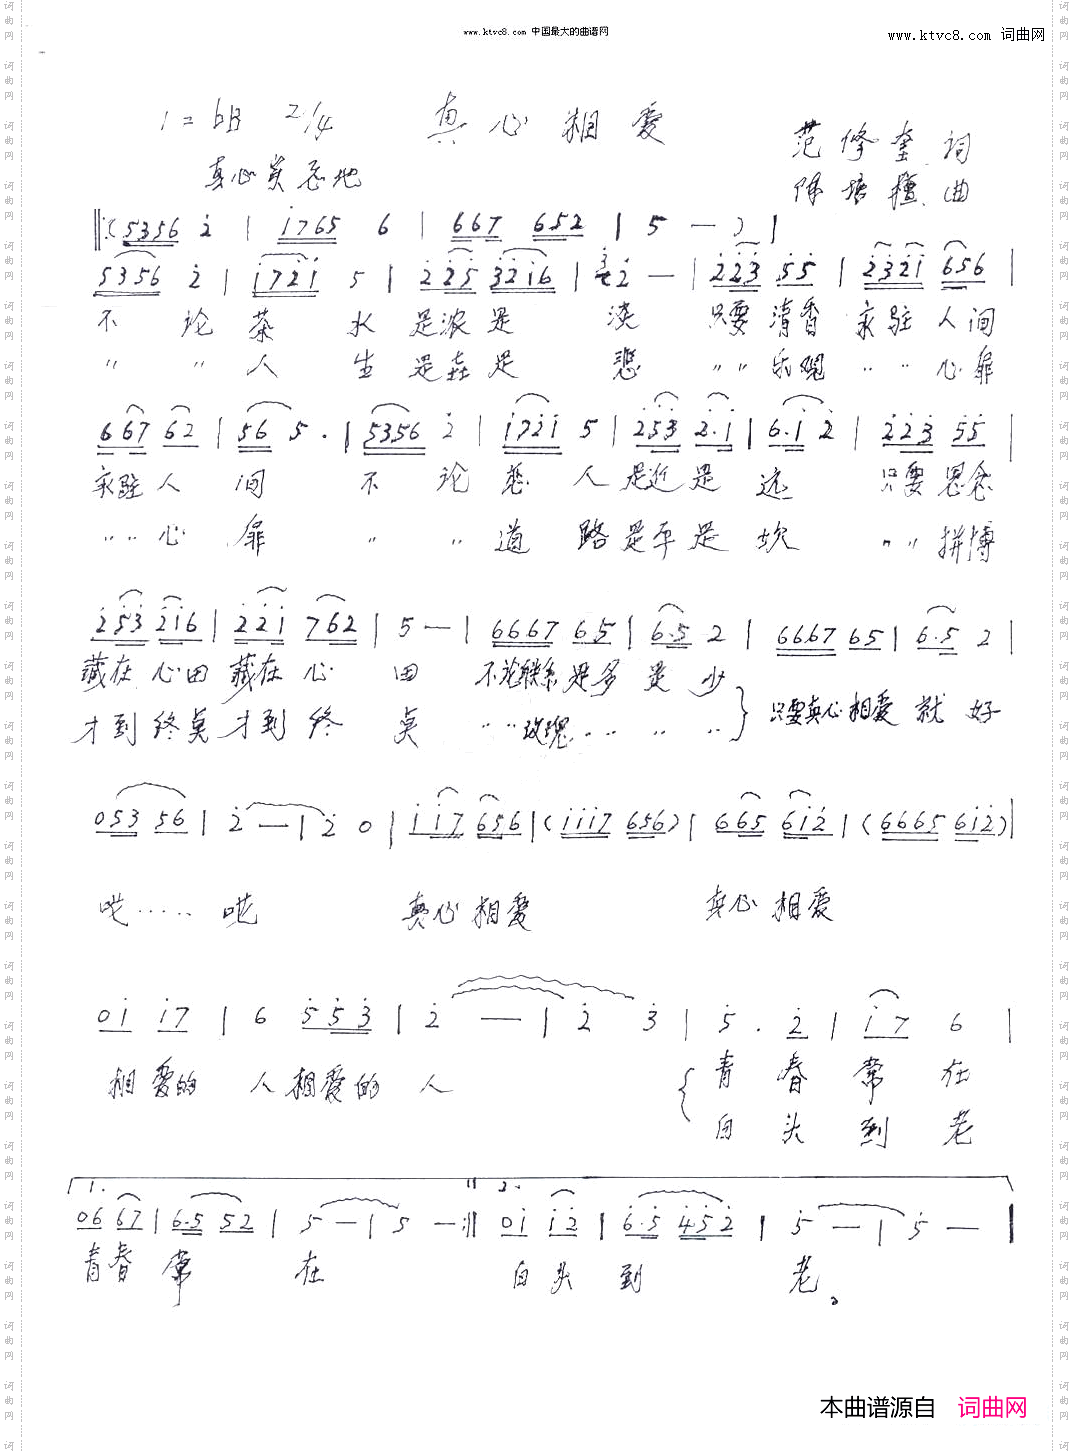 www.ktvc8.com 中国最大的曲谱网
www.ktvc8.com 词曲网
1=bB 2/4 真心相爱
范修奎 词
真心 地
曲
5356 2 | 1765 6 | 667 652 | 5 — ) |
5356 2 | 1721 5 | 225 3216 | 2 — | 223 55 | 2321 656 |
不 论 茶 水 是浓是 淡 只要清香 永驻人间
〃 〃 人 生 是喜是 悲 〃〃乐观 〃〃心扉
667 62 | 56 5. | 5356 2 | 1721 5 | 253 2.1 | 6.1 2 | 223 55 |
永驻人 间 不 论 恋 人 是近是 远 只要思念
〃〃心 扉 〃 〃 道 路是平是 坎 〃〃拼博
253 216 | 221 762 | 5 — | 6667 65 | 6.5 2 | 6667 65 | 6.5 2 |
藏在心田 藏在心 田 不论联系是多 是 少
才到终点 才到 终 点 〃〃玫瑰〃〃 〃 〃 } 只要真心相爱 就 好
053 56 | 2 — | 2 0 | 117 656 | (1117 656) | 665 612 | (6665 612) |
哎····· 哎 真心相爱 真心相爱
01 17 | 6 553 | 2 — | 2 3 | 5. 2 | 17 6 |
相爱的 人相爱的 人 { 青 春 常 在
白 头 到 老
1. 2.
06 67 | 6.5 52 | 5 — | 5 — :|| 01 12 | 6.5 452 | 5 — | 5 — |
青春 常 在 白头 到 老。
本曲谱源自 词曲网